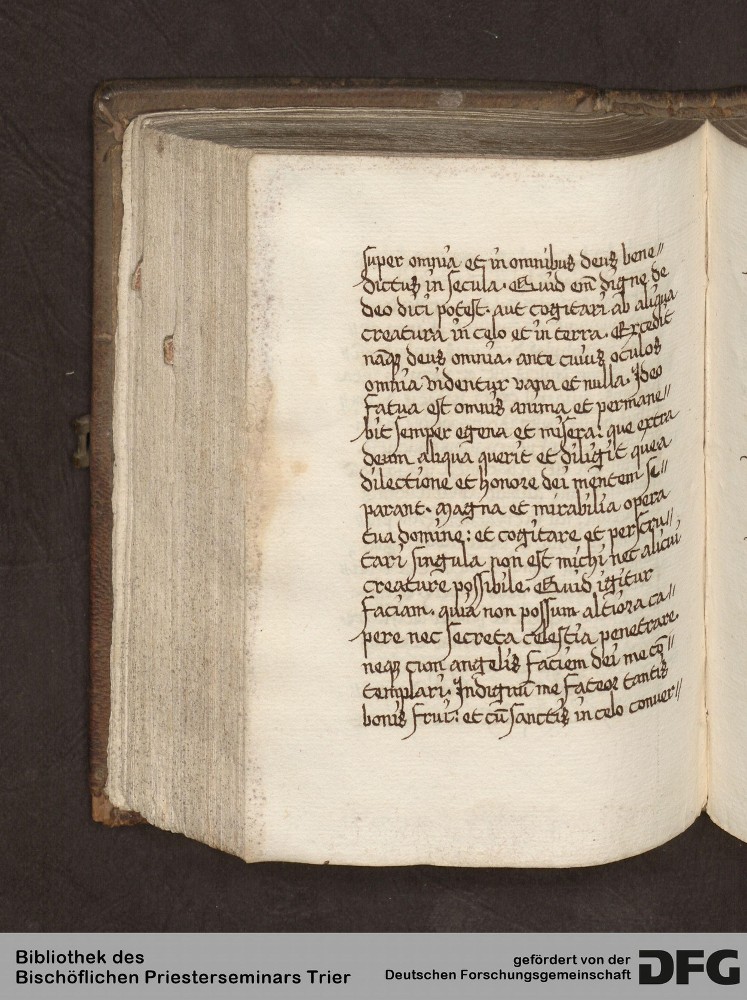 super omnia et in omnibus deus bene//
dictus in secula. Quid em̄ digne de
deo dici potest. aut cogitari ab aliqua
creatura in celo et in terra. Excedit
nāqꝫ deus omnia. ante cuius oculos
omnia videntur vana et nulla. Ideo
fatua est omnis anima et permane//
bit semper egena et misera: que extra
deum aliqua querit et diligit que a
dilectione et honore dei mentem se//
parant. Magna et mirabilia opera
tua domine: et cogitare et perscru//
tari singula non est michi nec alicui
creature possibile. Quid igitur
faciam. quia non possum altiora ca//
pere nec secreta celestia penetrare.
neqꝫ cum angelis faciem dei me cō//
templari. Indignū me fateor tantis
bonis frui: et cū sanctis in celo conver//
Bibliothek des
Bischöflichen Priesterseminars Trier
gefördert von der
Deutschen Forschungsgemeinschaft
DFG